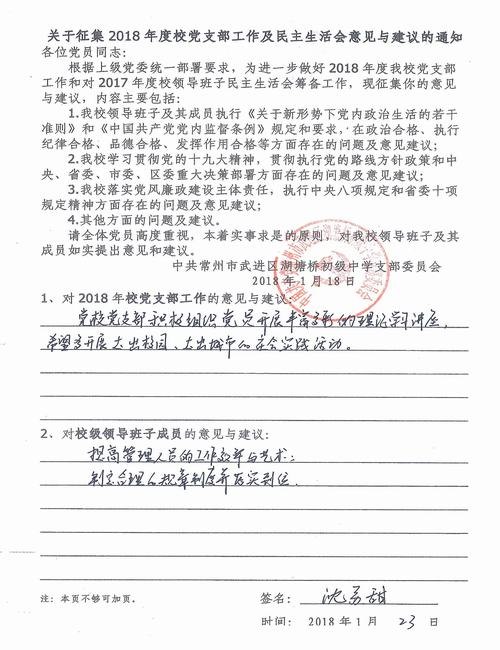 关于征集 2018 年度校党支部工作及民主生活会意见与建议的通知
各位党员同志：
根据上级党委统一部署要求，为进一步做好 2018 年度我校党支部
工作和对 2017 年度校领导班子民主生活会筹备工作，现征集你的意见
与建议，内容主要包括：
1.我校领导班子及其成员执行《关于新形势下党内政治生活的若干
准则》和《中国共产党党内监督条例》规定和要求，在政治合格、执行
纪律合格、品德合格、发挥作用合格等方面存在的问题及意见建议；
2.我校学习贯彻党的十九大精神，贯彻执行党的路线方针政策和中
央、省委、市委、区委重大决策部署方面存在的问题及意见建议；
3.我校落实党风廉政建设主体责任，执行中央八项规定和省委十项
规定精神方面存在的问题及意见建议；
4.其他方面的问题及建议。
请全体党员高度重视，本着实事求是的原则，对我校领导班子及其
成员如实提出意见和建议。
中共常州市武进区湖塘桥初级中学支部委员会
2018 年 1 月 18 日
1、对 2018 年校党支部工作的意见与建议：
党校党支部积极组织党员开展丰富多彩的理论学习讲座，
希望多开展走出校园、走出城市的社会实践活动。
2、对校级领导班子成员的意见与建议：
提高管理人员的工作效率与艺术；
制定合理的规章制度并落实到位。
注：本页不够可加页。
签名： 沈 甜
时间： 2018 年 1 月 23 日